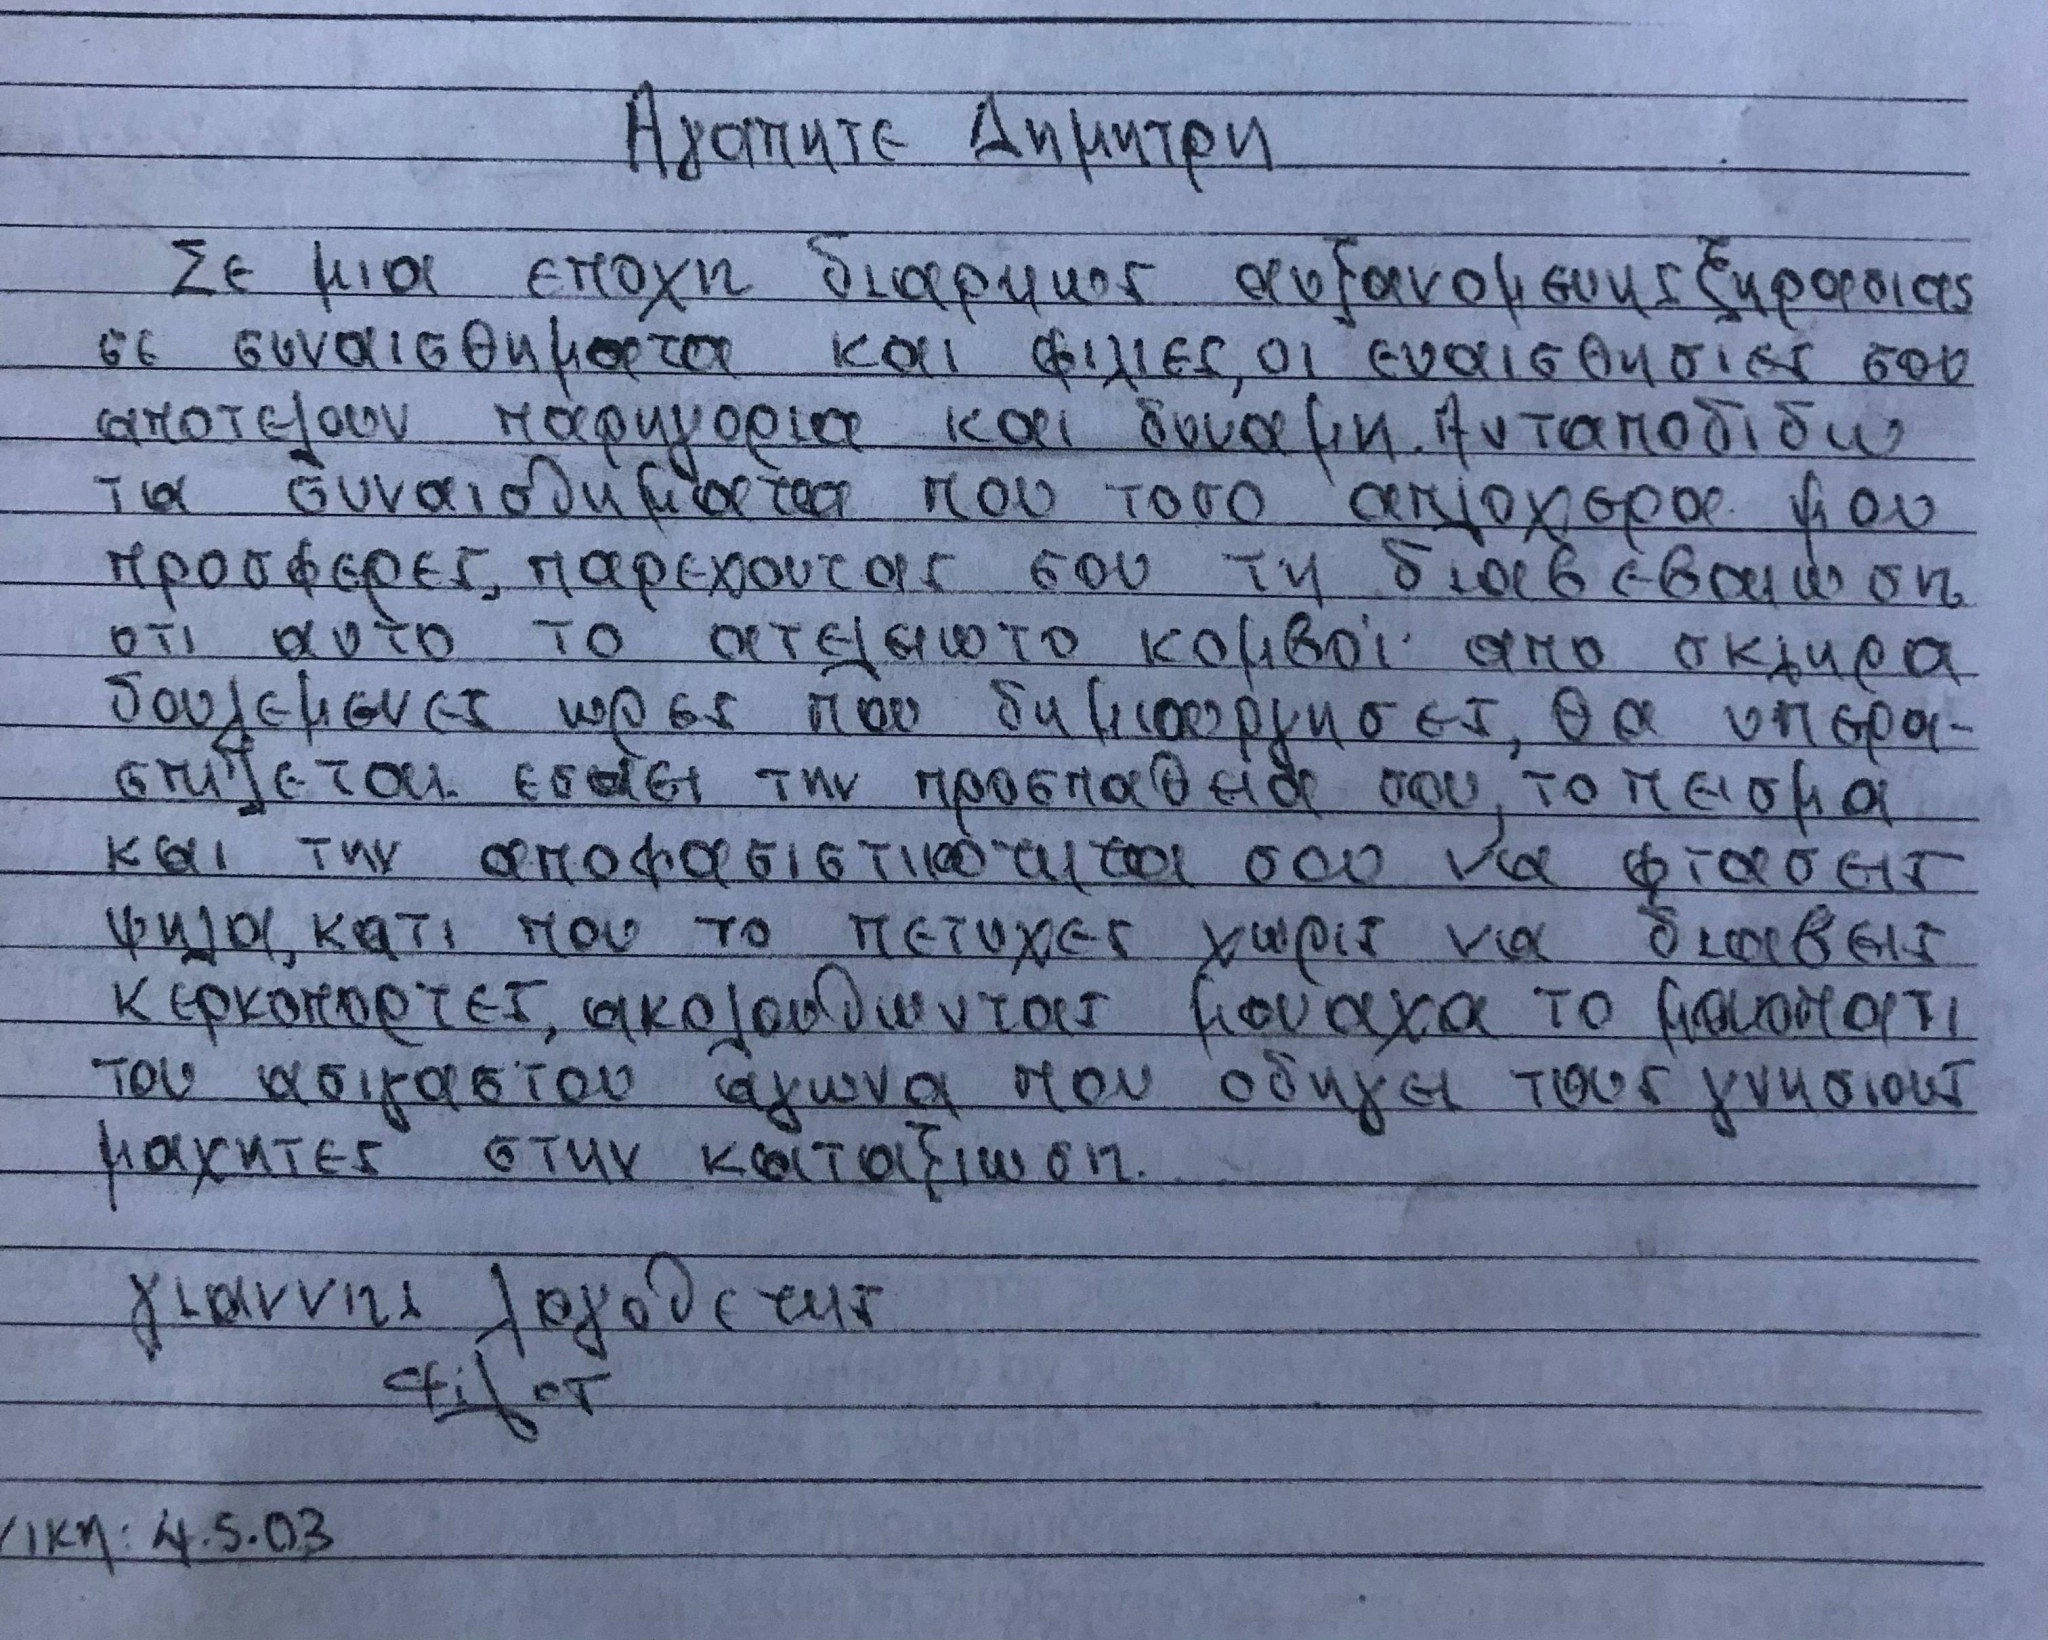 Αγαπητε Δημητρη
Σε μια εποχη διαρκως αυξανομενης ξηρασιας
σε συναισθηματα και φιλιες, οι ευαισθησιες σου
αποτελουν παρηγορια και δυναμη. Ανταποδιδω
τα συναισθηματα που τοσο απλοχερα μου
προσφερες, παρεχοντας σου τη διαβεβαιωση
οτι αυτο το ατελειωτο κομβοϊ απο σκληρα
δουλεμενες ωρες που δημιουργησες, θα υπερα-
σπιζεται εσαει την προσπαθεια σου, το πεισμα
και την αποφασιστικοτητα σου να φτασεις
ψηλα, κατι που το πετυχες χωρις να διαβεις
κερκοπορτες, ακολουθωντας μοναχα το μονοπατι
του ασιγαστου αγωνα που οδηγει τους γνησιους
μαχητες στην καταξιωση.
γιαννης λογοθετης
νικη: 4.5.03